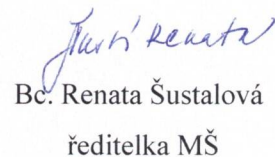 Renata
Bc. Renata Šustalová
ředitelka MŠ